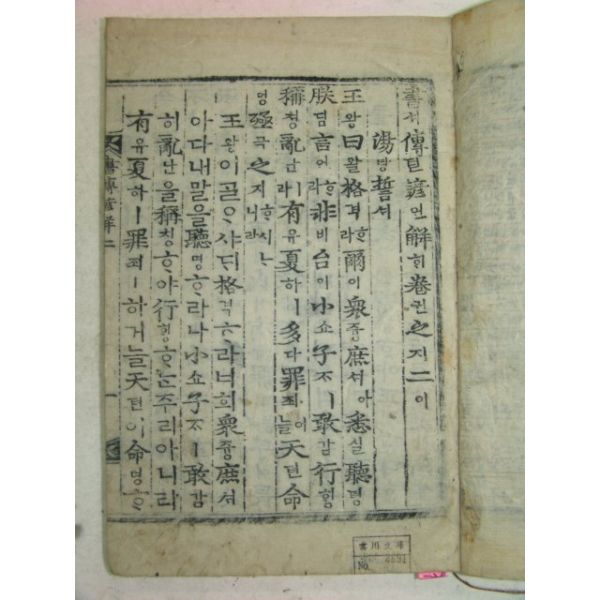 書셔傳뎐諺언解ᄒᆡ卷권之지二이
湯탕誓셔
王왕曰왈格격ᄒᆞ라爾이衆즁庶셔아悉실聽텽
朕딤言언ᄒᆞ라非비台이小쇼子ᄌᆞㅣ敢감行ᄒᆡᆼ
稱칭亂난이라有유夏하ㅣ多다罪죄ㅣ어늘天텬命
명殛극之지ᄒᆞ시니라
王왕이ᄀᆞᆯᄋᆞ샤ᄃᆡ格격ᄒᆞ라너희衆즁庶셔
아다내말을聽텽ᄒᆞ라나小쇼子ᄌᆞㅣ敢감
히亂난을稱칭ᄒᆞ야行ᄒᆡᆼᄒᆞᄂᆞᆫ주리아니라
有유夏하ㅣ罪죄ㅣ하거늘天텬이命명ᄒᆞ
書傳諺解二
No. 4631